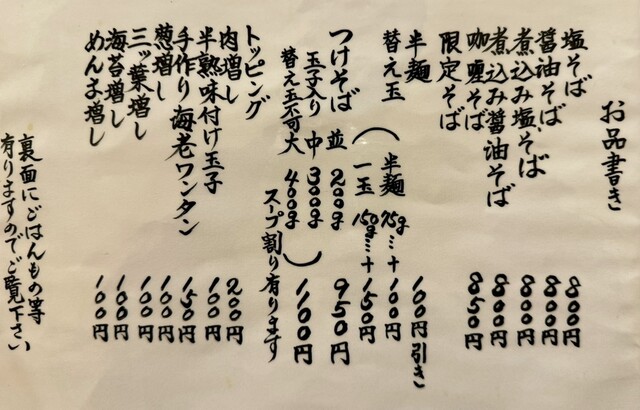 お品書き
塩そば 800円
醤油そば 800円
煮込み塩そば 800円
煮込み醤油そば 800円
咖喱そば 850円
限定そば
半麺 100円引き
替え玉 (半麺 75g…+100円
一玉 150g…+150円)
つけそば 並 200g 950円
玉子入り 中 300g
替え玉不可 大 400g 1100円
スープ割り有ります
トッピング
肉増し 200円
半熟味付け玉子 100円
手作り海老ワンタン 150円
葱増し 100円
三ッ葉増し 100円
海苔増し 100円
めんま増し 100円
裏面にごはんもの等
有りますのでご覧下さい